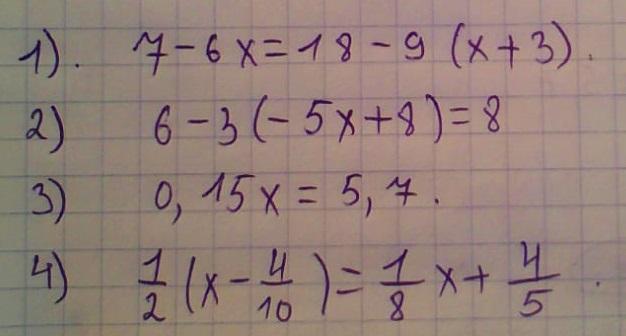 1). 7-6x=18-9 (x+3).
2) 6-3(-5x+8)=8
3) 0,15x=5,7.
4) 1/2(x-4/10)=1/8x+4/5.